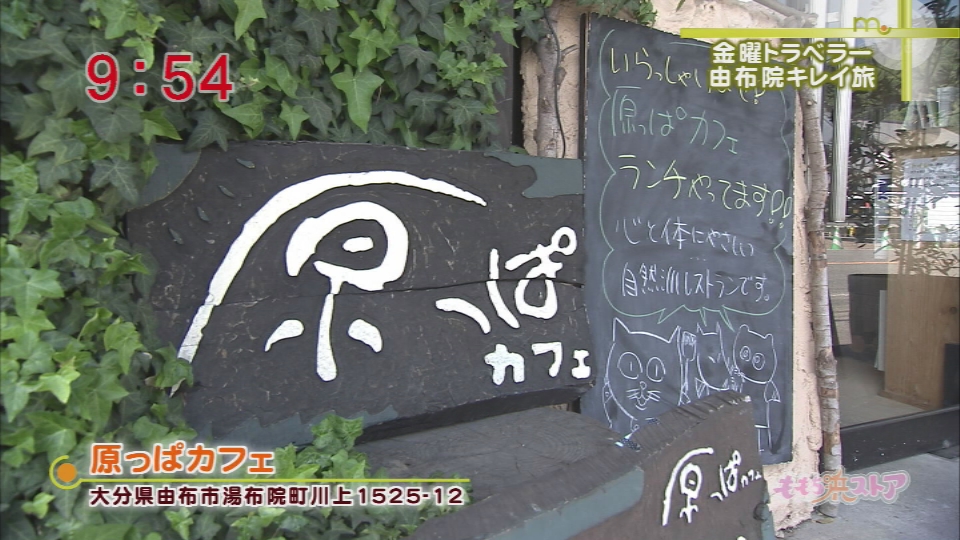 9:54
m.
金曜トラベラー
由布院キレイ旅
原っぱカフェ
ランチやってます!!
心と体にやさしい
自然派レストランです。
原っぱ
カフェ
原っぱカフェ
原っぱカフェ
大分県由布市湯布院町川上1525-12
ももち浜ストア